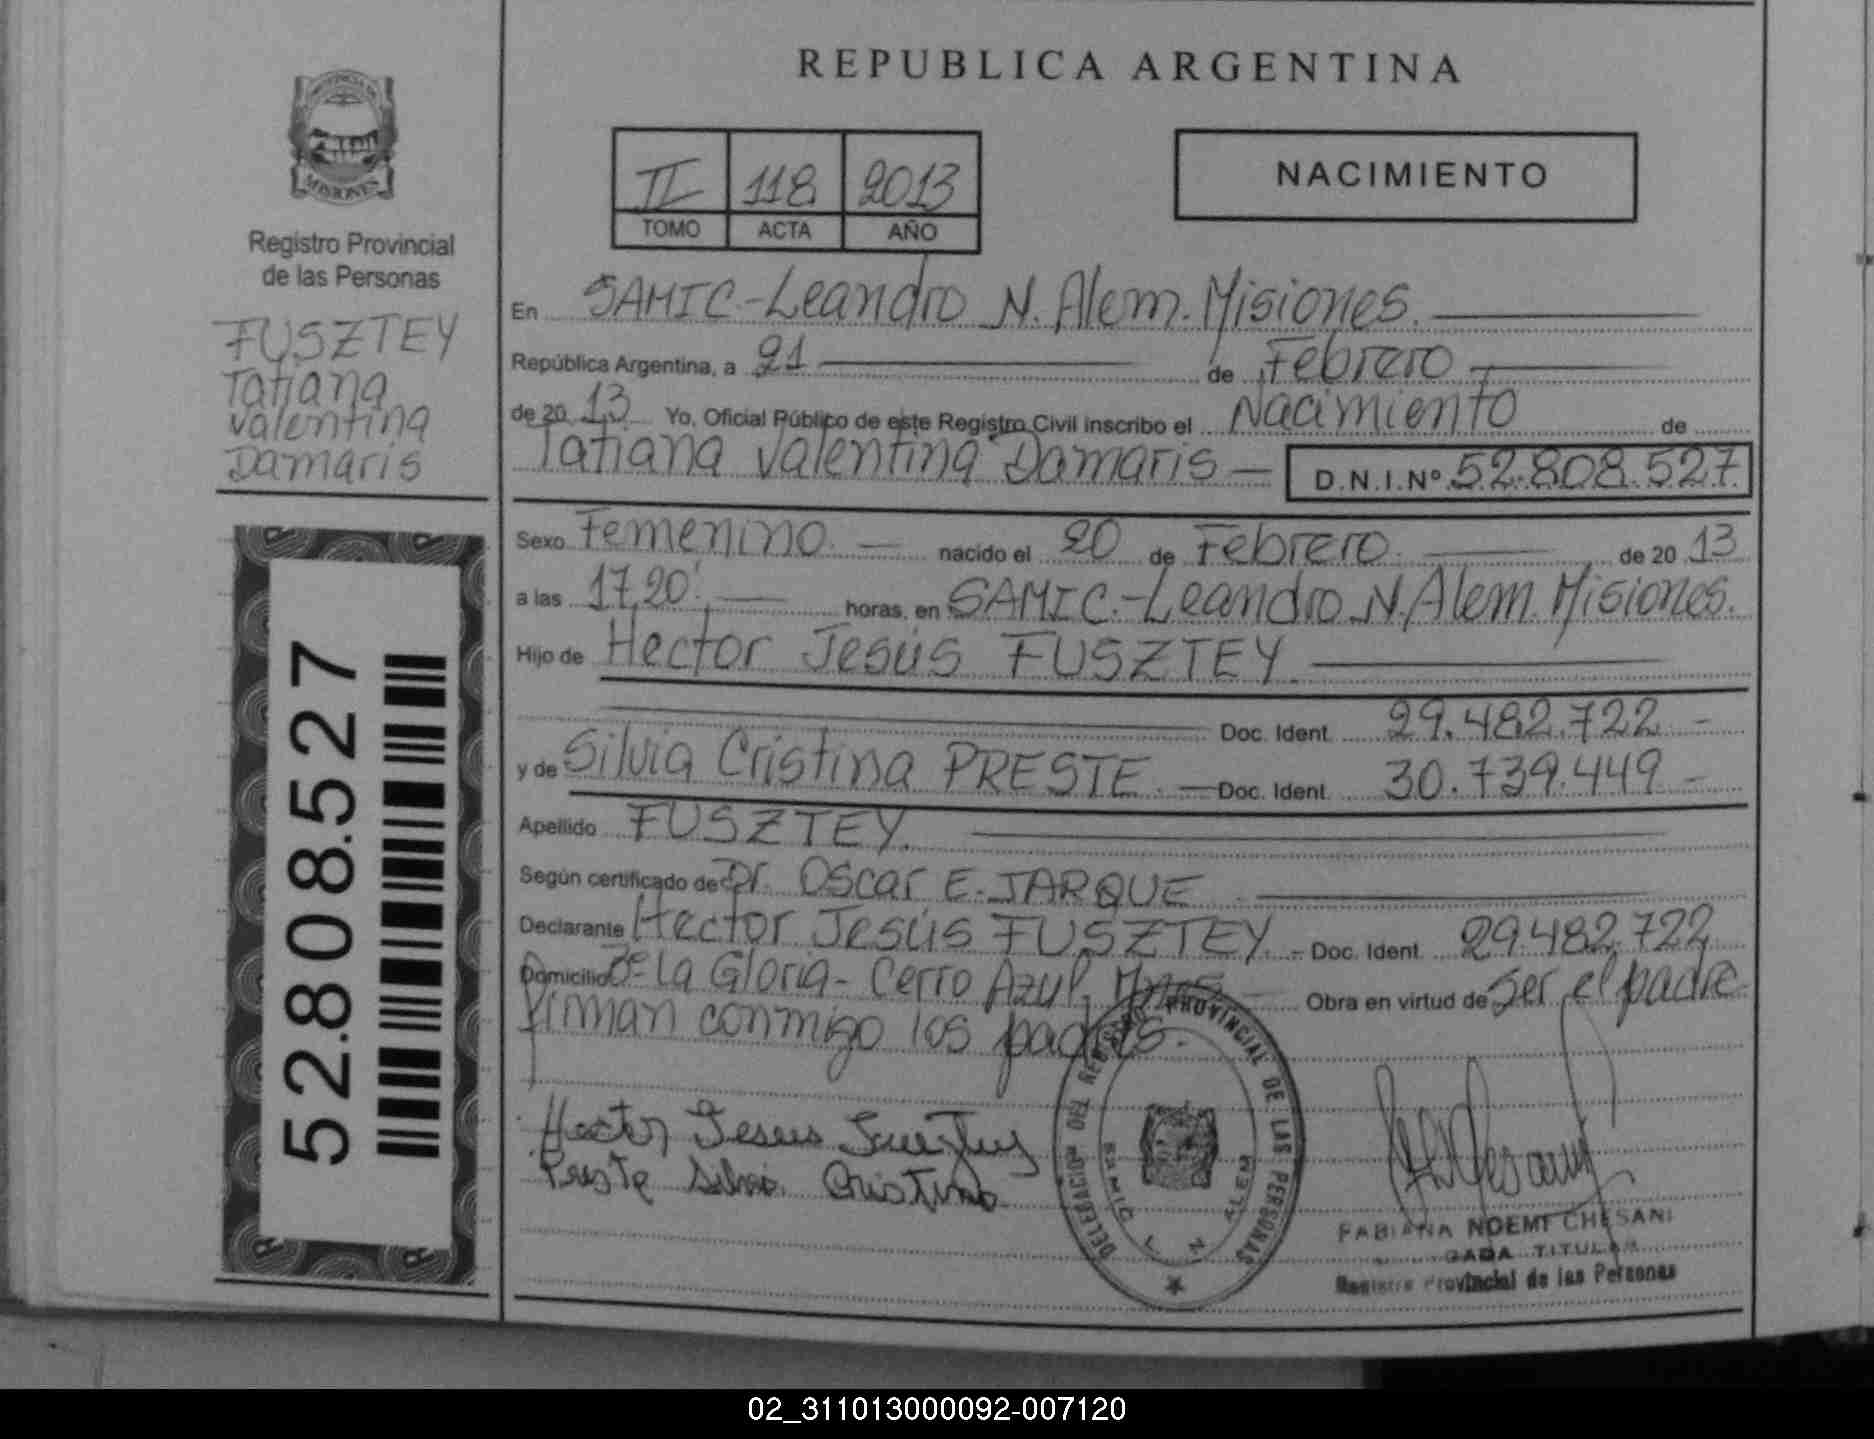 REPUBLICA ARGENTINA
PROVINCIA DE
MISIONES
Registro Provincial
de las Personas
FUSZTEY
Tatiana
Valentina
Damaris
52.808.527
II 118 2013
TOMO ACTA AÑO
NACIMIENTO
En SAMIC-Leandro N. Alem. Misiones.
República Argentina, a 21 de Febrero
de 20 13 Yo, Oficial Público de este Registro Civil inscribo el Nacimiento de
Tatiana Valentina Damaris D.N.I.Nº 52.808.527
Sexo Femenino. nacido el 20 de Febrero. de 20 13
a las 17,20'. horas, en SAMIC.-Leandro N. Alem. Misiones.
Hijo de Hector Jesús FUSZTEY.
Doc. Ident. 29.482.722 -
y de Silvia Cristina PRESTE. Doc. Ident. 30.739.449 -
Apellido FUSZTEY.
Según certificado de Dr. Oscar E. JARQUE
Declarante Hector Jesús FUSZTEY. - Doc. Ident. 29.482.722
Domicilio Bº La Gloria - Cerro Azul, Mnes Obra en virtud de ser el padre
firman conmigo los padres.
Hector Jesus
Preste Silvia Cristina
DELEGACION DEL REGISTRO PROVINCIAL DE LAS PERSONAS
SAMIC L. N. ALEM
FABIANA NOEMI CHESANI
TITULAR
Registro Provincial de las Personas
02_311013000092-007120